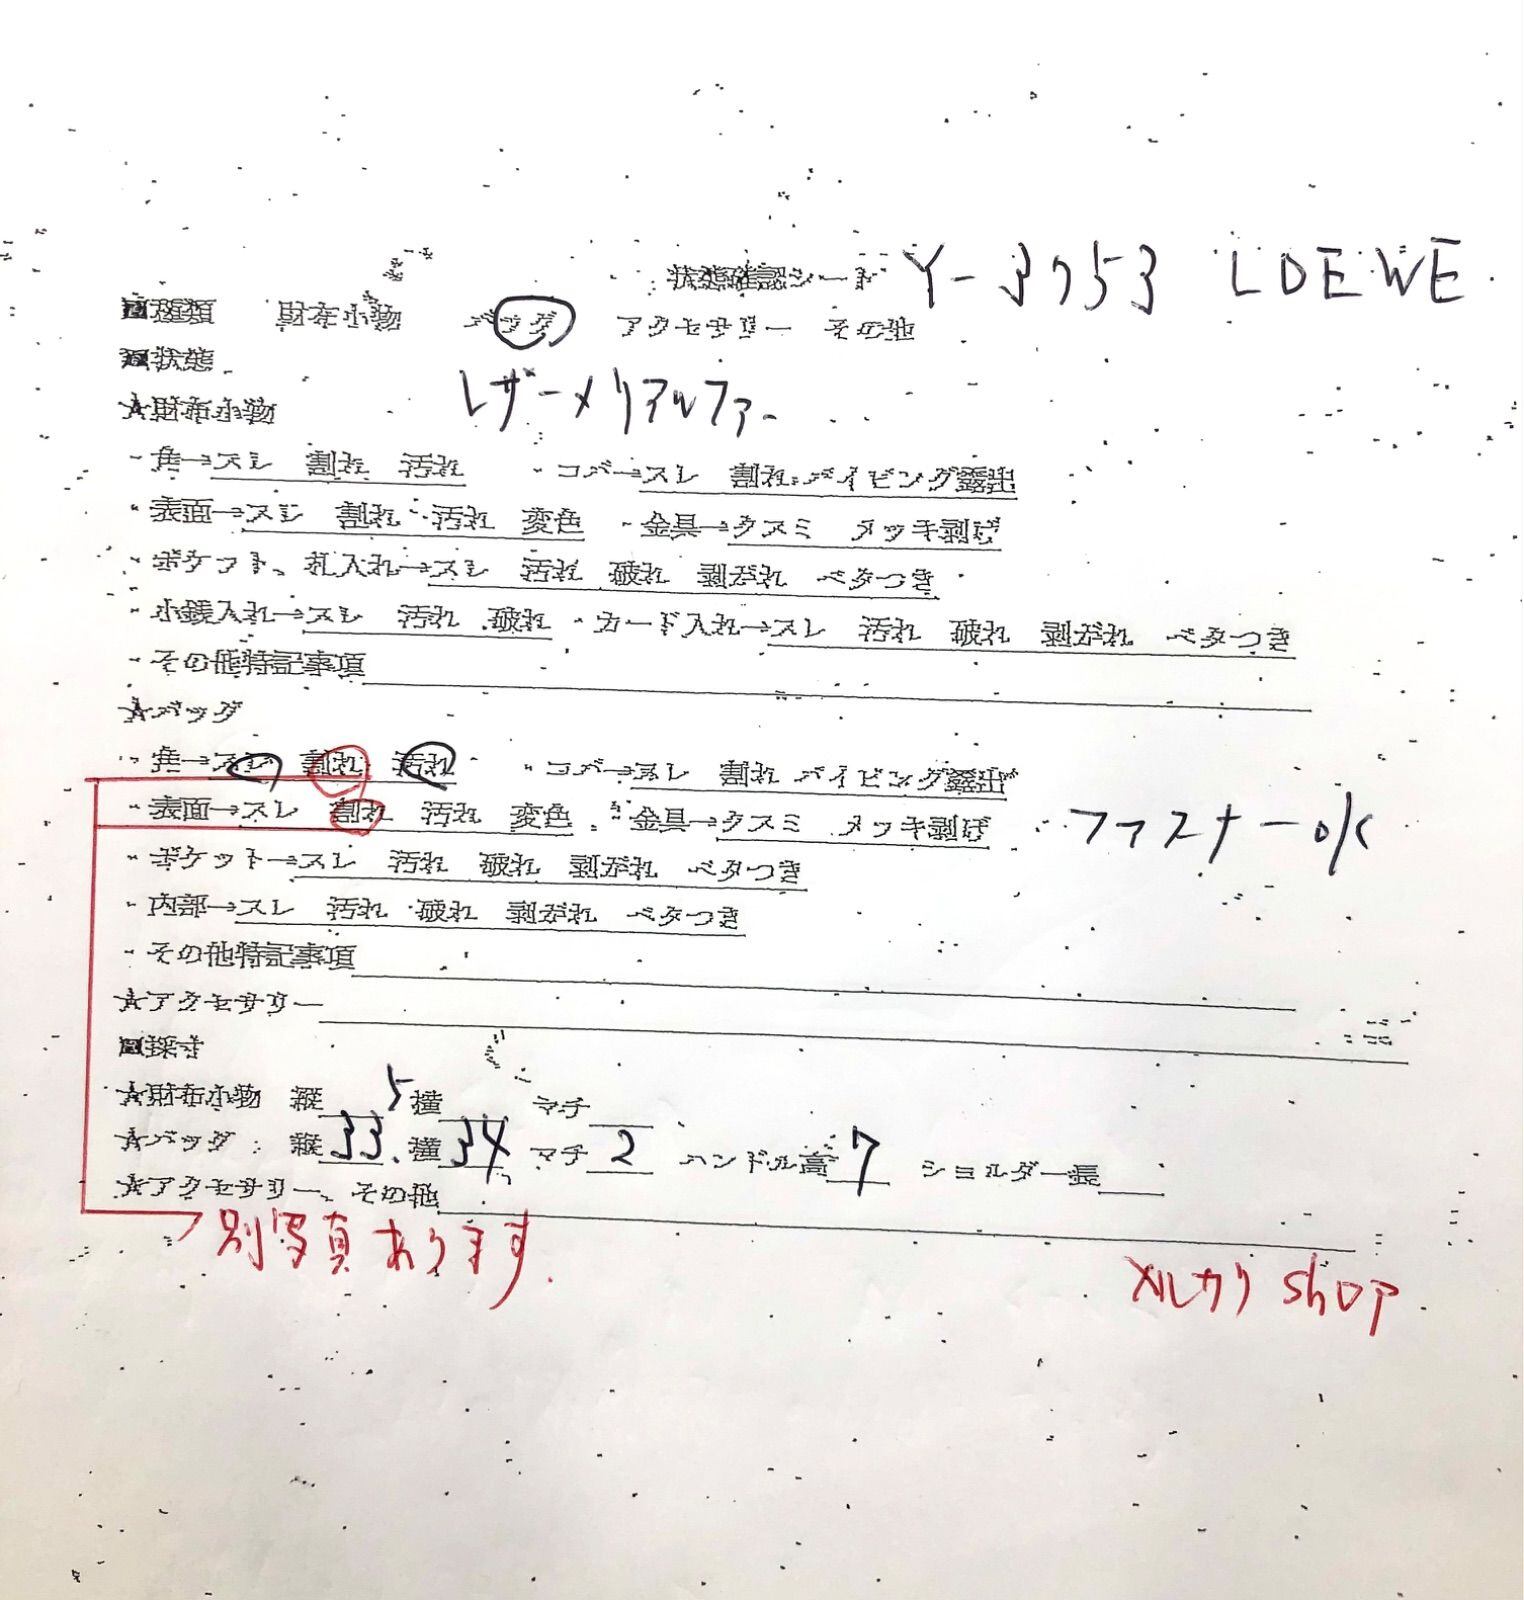 状態確認シート Y-3953 LOEWE
■種類 財布小物 バッグ アクセサリー その他
■状態
レザーメリアルファー
★財布小物
・角→スレ 割れ 汚れ ・コバ→スレ 割れ パイピング露出
・表面→スレ 割れ 汚れ 変色 ・金具→クスミ メッキ剥げ
・ポケット、札入れ→スレ 汚れ 破れ 剥がれ ベタつき
・小銭入れ→スレ 汚れ 破れ ・カード入れ→スレ 汚れ 破れ 剥がれ ベタつき
・その他特記事項
★バッグ
・角→スレ 割れ 汚れ ・コバ→スレ 割れ パイピング露出
・表面→スレ 割れ 汚れ 変色 ・金具→クスミ メッキ剥げ ファスナーok
・ポケット→スレ 汚れ 破れ 剥がれ ベタつき
・内部→スレ 汚れ 破れ 剥がれ ベタつき
・その他特記事項
★アクセサリー
■採寸
★財布小物 縦 5 横 マチ
★バッグ 縦 33. 横 34 マチ 2 ハンドル高 7 ショルダー長
★アクセサリー、その他
別写真あります.
メルカリ shop